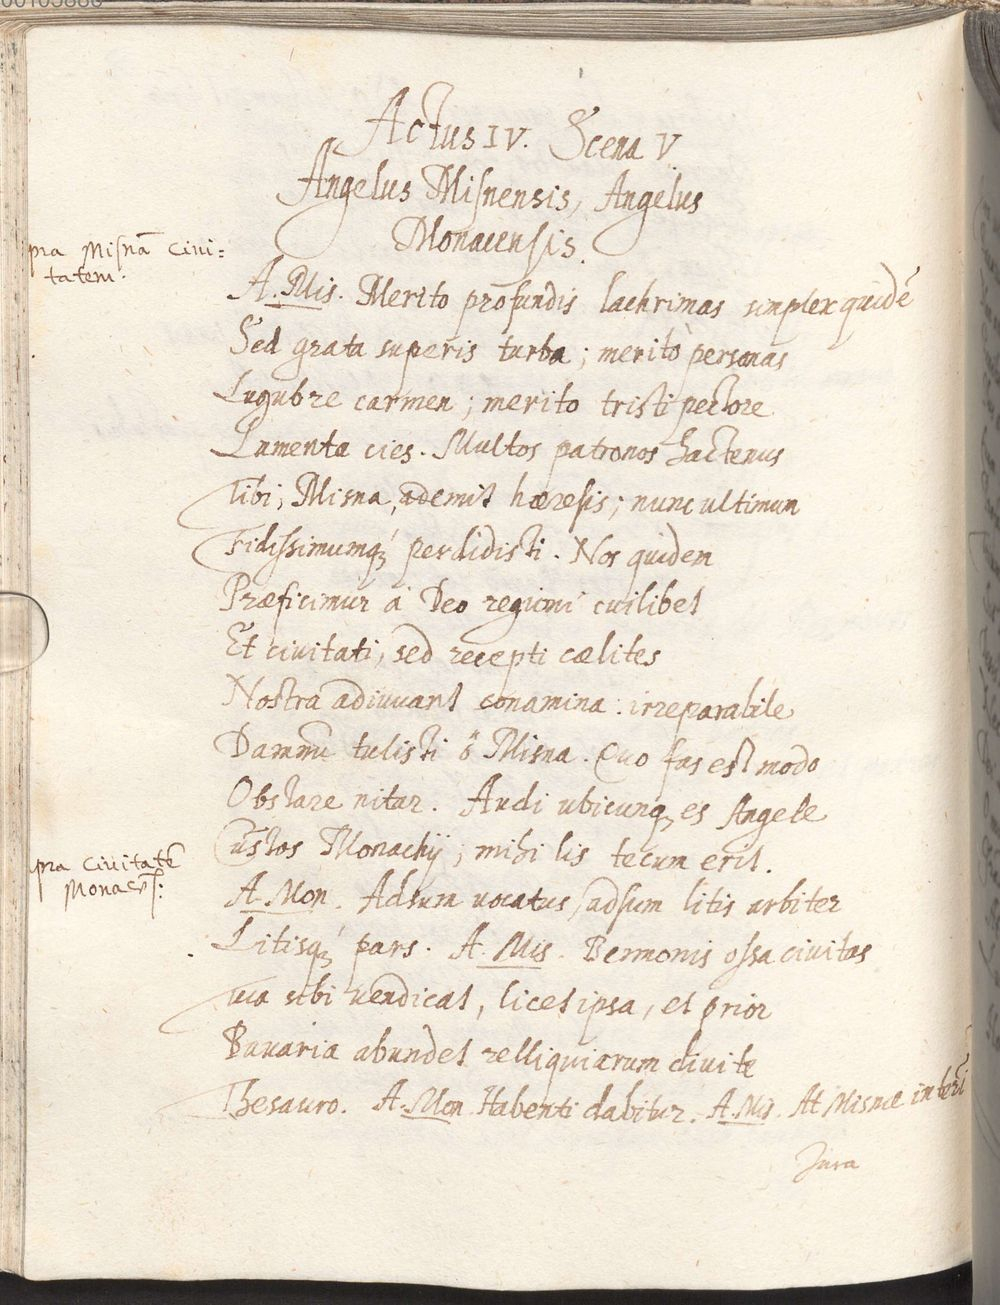 Actus IV. Scena V.
Angelus Misnensis, Angelus
Monacensis.
pra Misnā Civi=
tatem.
A. Mis. Merito profundis lachrimas simplex quidē
Sed grata superis turba; meritò personas
Lugubre carmen; merito tristi pectore
Lamenta cies. Multos patronos hactenus
Tibi, Misna, ademit hæresis; nunc ultimum
Fidissimumq́ perdidisti. Nos quidem
Præficimur á Deo regioni cuilibet
Et civitati, sed recepti cælites
Nostra adiuvant conamina: irreparabile
Damnū tulisti ô Misna. Quo fas est modo
Obstare nitar. Audi ubicunq es Angele
Custos Monachij; mihi lis tecum erit.
pra Civitatē
Monacēs:
A. Mon. Adsum vocatus, adsum litis arbiter
Litisq́ pars. A. Mis. Bennonis ossa civitas
Tua sibi vendicat, licet ipsa, et prior
Bavaria abundet relliquiarum divite
Thesauro. A. Mon. Habenti dabitur. A. Mis. At Misnæ interī
Jura